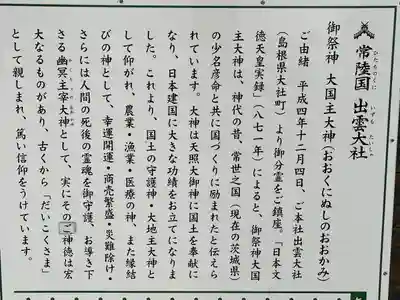 常陸国 出雲大社
ひたちのくに いずもたいしゃ
御祭神 大国主大神(おおくにぬしのおおかみ)
ご由緒 平成四年十二月四日、ご本社出雲大社
(島根県大社町)より御分霊をご鎮座。「日本文
徳天皇実録」(八七一年)によると、御祭神大国
主大神は、神代の昔、常世之国(現在の茨城県)
の少名彦命と共に国づくりに励まれたと伝えら
れています。大神は天照大御神に国土を奉献に
なり、日本建国に大きな功績をお立てになりま
した。これより、国土の守護神・大地主大神と
して仰がれ、農業・漁業・医療の神、また縁結
びの神として、幸運開運・商売繁盛・災難除け・
さらには人間の死後の霊魂を御守護、お導き下
さる幽冥主宰大神として、実にそのご神徳は宏
大なるものがあり、古くから「だいこくさま」
として親しまれ、篤い信仰をうけています。